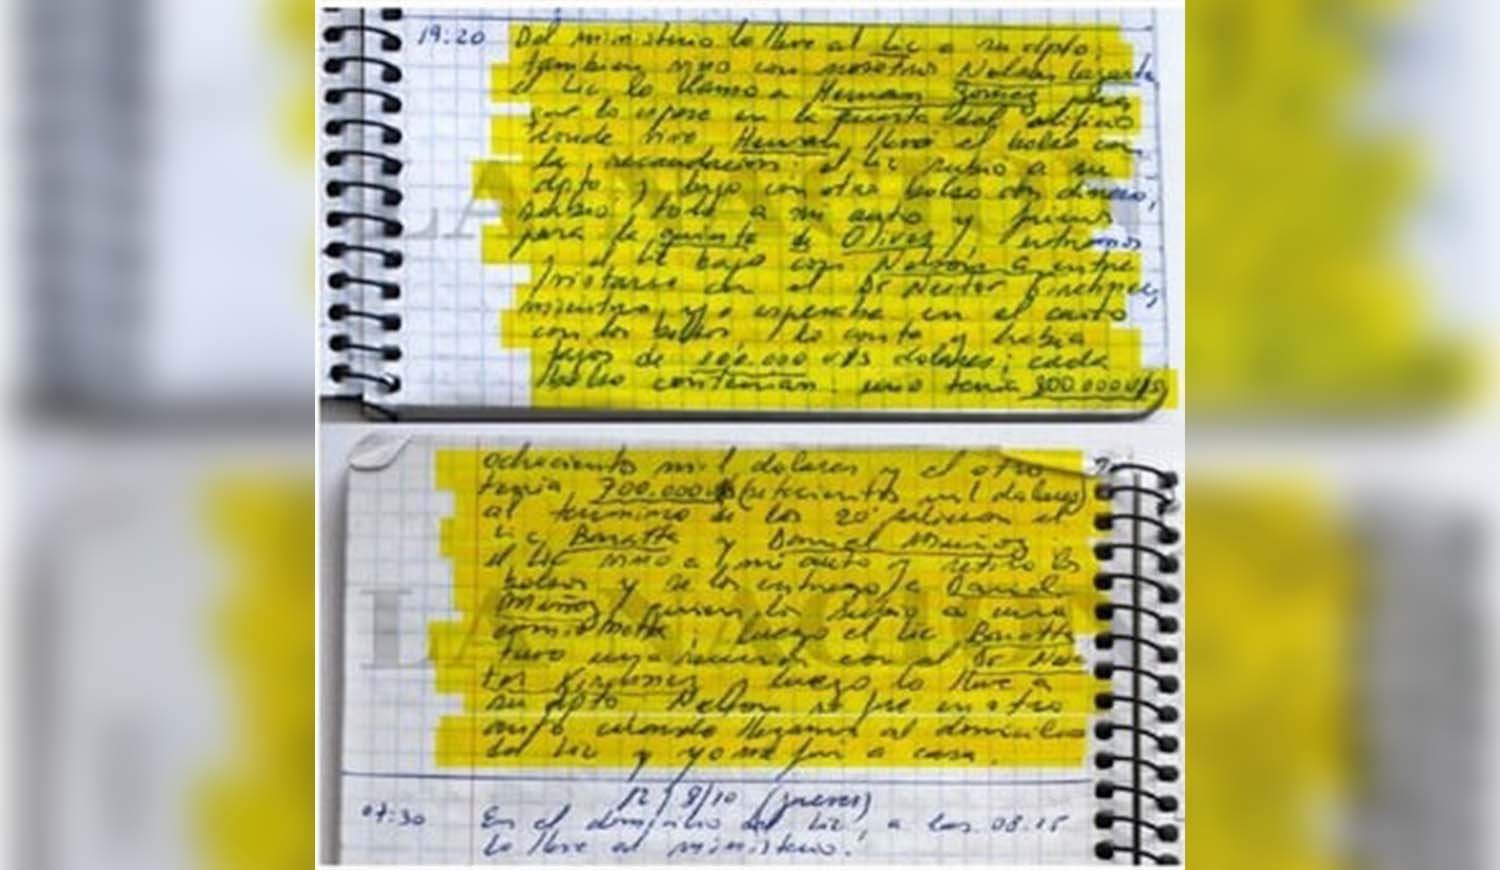 19:20 Del ministerio lo lleve al Lic a su dpto.
tambien vino con nosotros Nelson Lazarte
el Lic lo llamo a Hernan Gomez para
que lo espere en la puerta del edificio
donde vive Hernan llevo el bolso con
la recaudación; el Lic subio a su
dpto y bajo con otro bolso con dinero,
todo a mi auto y fuimos
para la quinta de Olivos, entramos
y el Lic bajo con Nelson a entre
vistarse con el Dr Nestor Kirchner,
mientras yo esperaba en el auto
con los bolsos, lo conte y habia
fajos de 100.000 u/s dolares; cada
bolso contenian uno tenia 800.000 u/s
ochocientos mil dolares y el otro
tenia 700.000 u/s (setecientos mil dolares)
al termino de los 20' salieron el
Lic Baratta y Daniel Muñoz
el Lic vino a mi auto y retiro los
bolsos y se los entrego a Daniel
Muñoz quien los subio a una
camioneta; luego el Lic Baratta
tuvo una reunion con el Dr Nes
tor Kirchner y luego lo lleve a
su dpto Nelson se fue en otro
auto cuando llegamos al domicilio
del Lic y yo me fui a casa.
12/8/10 (jueves)
07:30 En el domicilio del Lic, a las 08.15
lo lleve al ministerio.
LA NACION
LA NACION